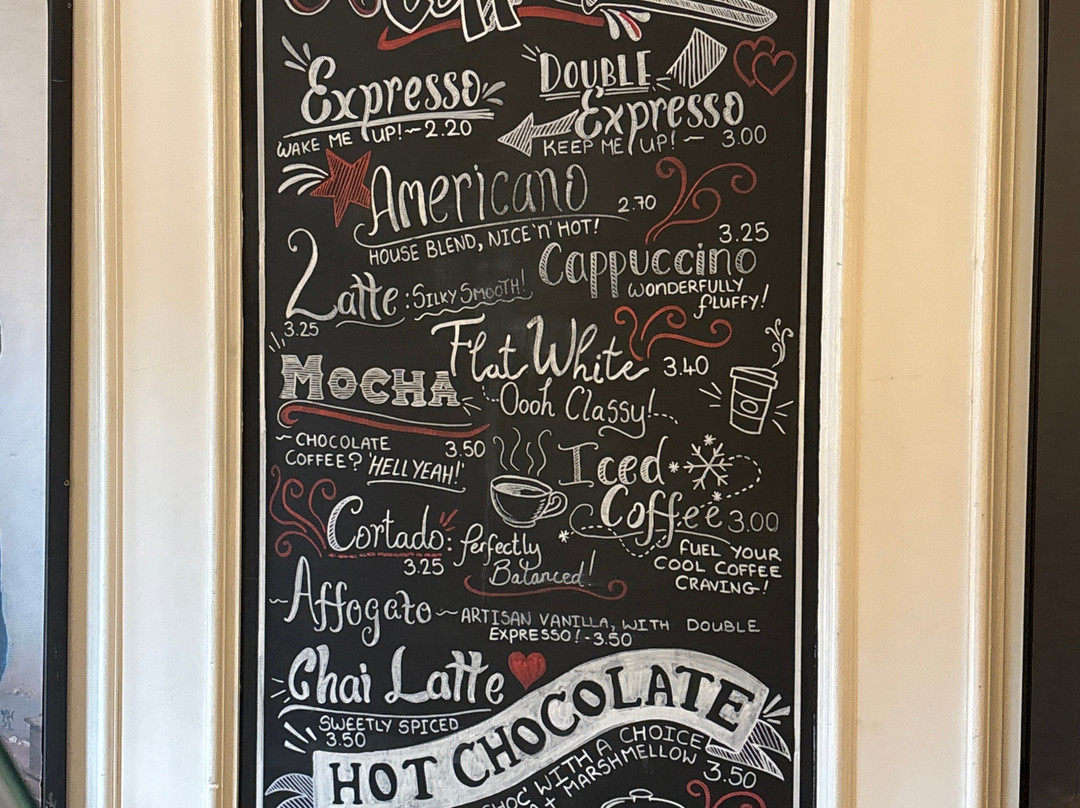 Expresso
WAKE ME UP! ~ 2.20
DOUBLE
Expresso
KEEP ME UP! ~ 3.00
Americano 2.70
HOUSE BLEND, NICE 'n' HOT!
3.25
Cappuccino
WONDERFULLY
fLUFFY!
Latte: SILKY SMOOTH!
3.25
Flat White 3.40
Oooh Classy!
MOCHA
~ CHOCOLATE 3.50
COFFEE? 'HELL YEAH!'
Iced
Coffee 3.00
FUEL YOUR
COOL COFFEE
CRAVING!
Cortado: Perfectly
3.25 Balanced!
~Affogato ~ ARTISAN VANILLA, WITH DOUBLE
EXPRESSO! - 3.50
Chai Latte
SWEETLY SPICED
3.50
HOT CHOCOLATE
CHOC WITH A CHOICE
+ MARSHMELLOW 3.50